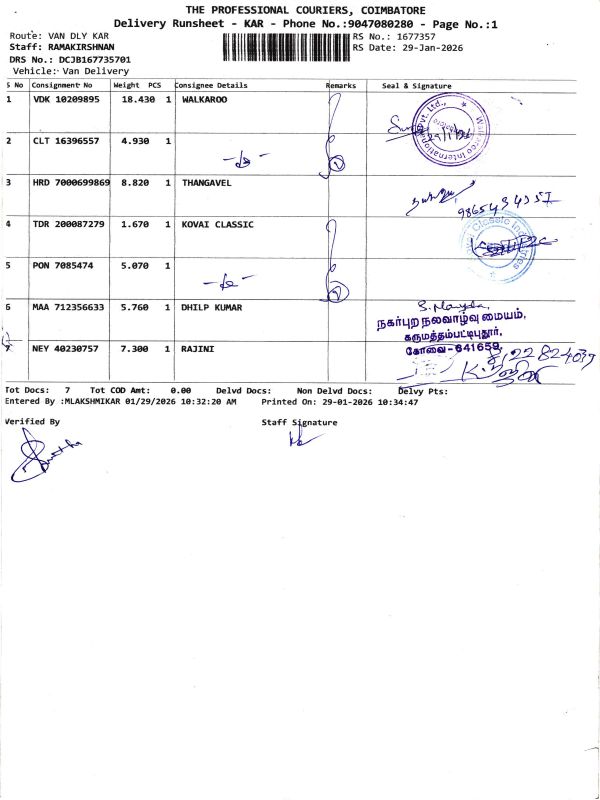 THE PROFESSIONAL COURIERS, COIMBATORE
Delivery Runsheet - KAR - Phone No.:9047080280 - Page No.:1
Route: VAN DLY KAR
RS No.: 1677357
Staff: RAMAKIRSHNAN
RS Date: 29-Jan-2026
DRS No.: DCJB167735701
Vehicle: Van Delivery
S No Consignment No Weight PCS Consignee Details Remarks Seal & Signature
1 VDK 10209895 18.430 1 WALKAROO
2 CLT 16396557 4.930 1
3 HRD 7000699869 8.820 1 THANGAVEL
4 TDR 200087279 1.670 1 KOVAI CLASSIC
5 PON 7085474 5.070 1
6 MAA 712356633 5.760 1 DHILP KUMAR
நகர்புற நலவாழ்வு மையம்,
கருமத்தம்பட்டிபுதூர்,
கோவை-641659,
7 NEY 40230757 7.300 1 RAJINI
Tot Docs: 7 Tot COD Amt: 0.00 Delvd Docs: Non Delvd Docs: Delvy Pts:
Entered By :MLAKSHMIKAR 01/29/2026 10:32:20 AM Printed On: 29-01-2026 10:34:47
Verified By
Staff Signature